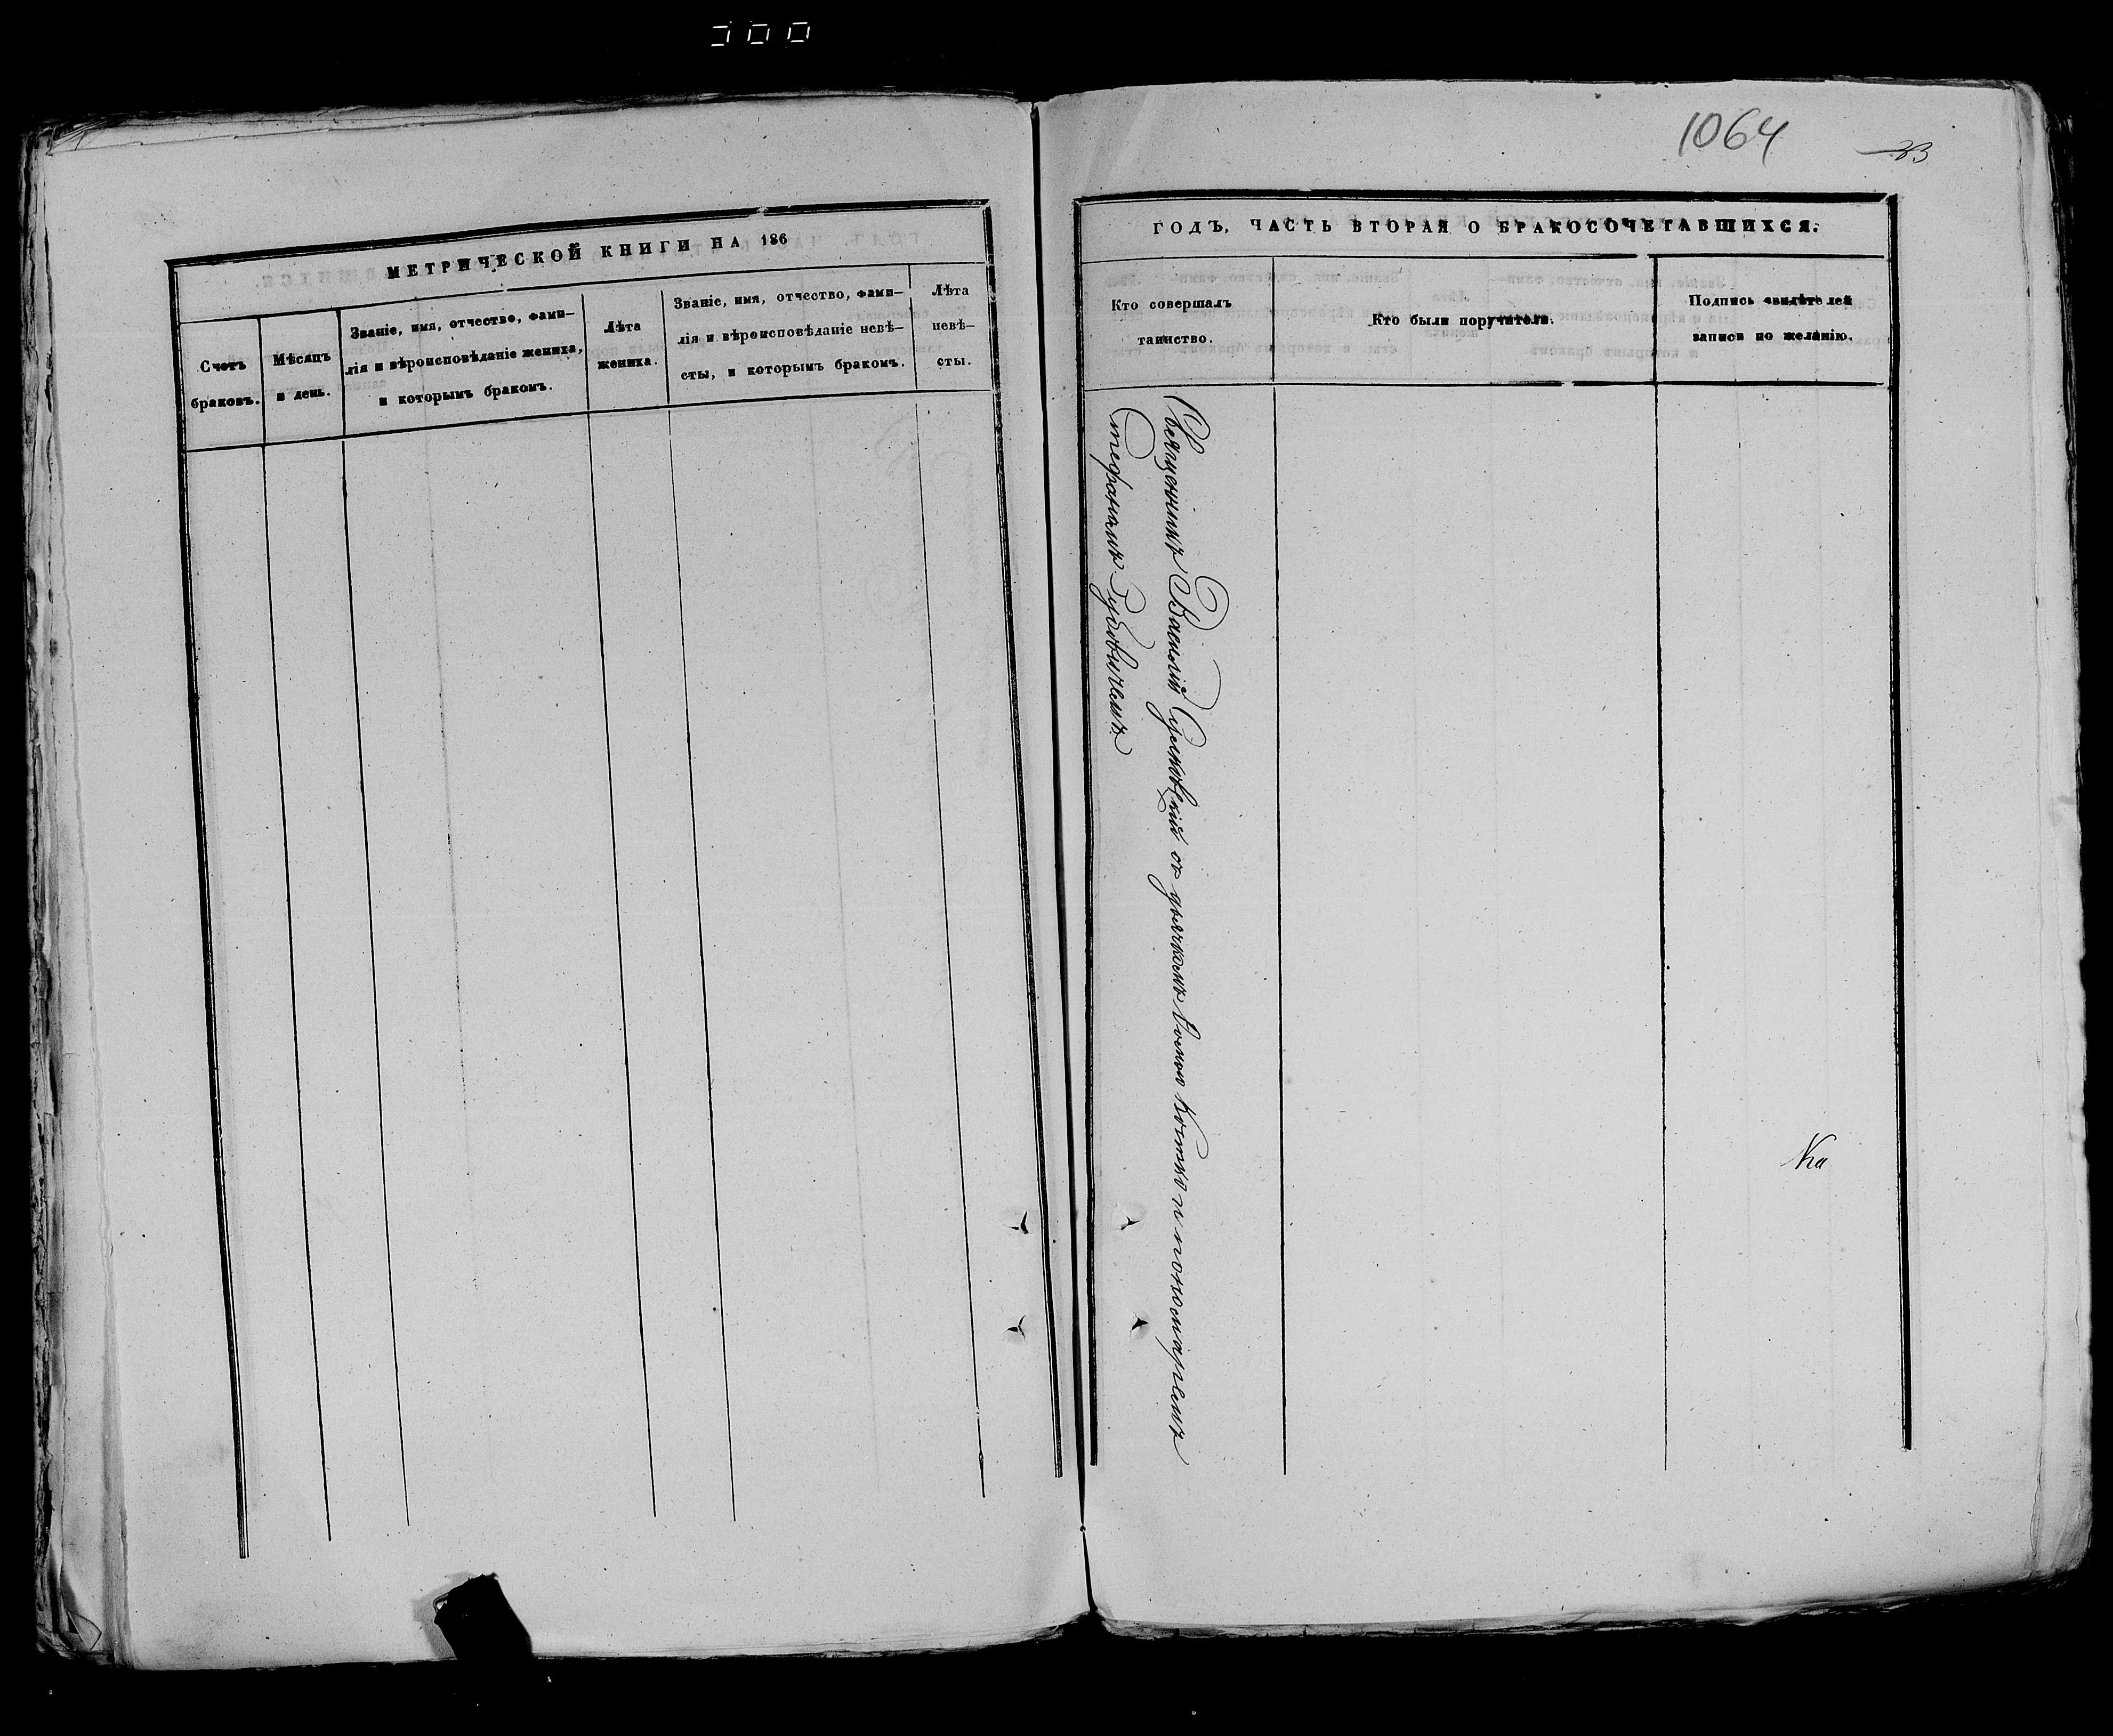 1064
МЕТРИЧЕСКОЙ КНИГИ НА 186
Счетъ
браковъ.
Мѣсяцъ
и день.
Званіе, имя, отчество, фами-
лія и вѣроисповѣданіе жениха,
и которымъ бракомъ.
Лѣта
жениха.
Званіе, имя, отчество, фами-
лія и вѣроисповѣданіе невѣ-
сты, и которымъ бракомъ.
Лѣта
невѣ-
сты.
ГОДЪ, ЧАСТЬ ВТОРАЯ О БРАКОСОЧЕТАВШИХСЯ.
Кто совершалъ
таинство.
Кто были поручители.
Подпись свидѣтелей
записи по желанію.
Священникъ Василій съ дьячкомъ и пономаремъ
Стефаномъ Гудовичемъ
Ка